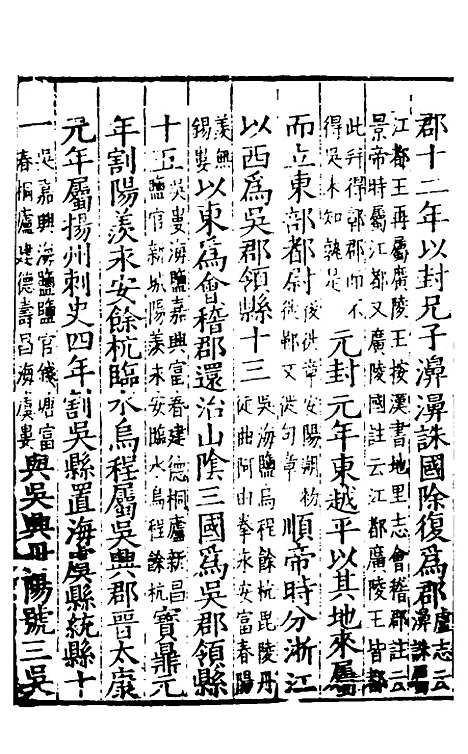 郡十二年以封兄子濞濞誅國除復爲郡盧志云濞誅屬
江都王再屬廣陵王按漢書地里志會稽郡註云
景帝時屬江都又廣陵國註云江都廣陵王皆都
此幷得鄣郡而不
得吳未知孰是　元封元年東越平以其地來屬
而立東部都尉後徙章安陽朔
徙鄞又徙句章　順帝時分浙江
以西爲吳郡領縣十三吳海鹽烏程餘杭毗陵丹
徒曲阿由拳永安富春陽
羨無
錫婁以東爲會稽郡還治山陰三國爲吳郡領縣
十五吳婁海鹽嘉興富春建德桐廬新昌
鹽官新城陽羨永安臨水烏程餘杭　寶鼎元
年割陽羨永安餘杭臨水烏程屬吳興郡晉太康
元年屬揚州刺史四年割吳縣置海虞縣統縣十
一吳嘉興海鹽鹽官錢塘富
春桐廬建德壽昌海虞婁與吳興丹陽號三吳